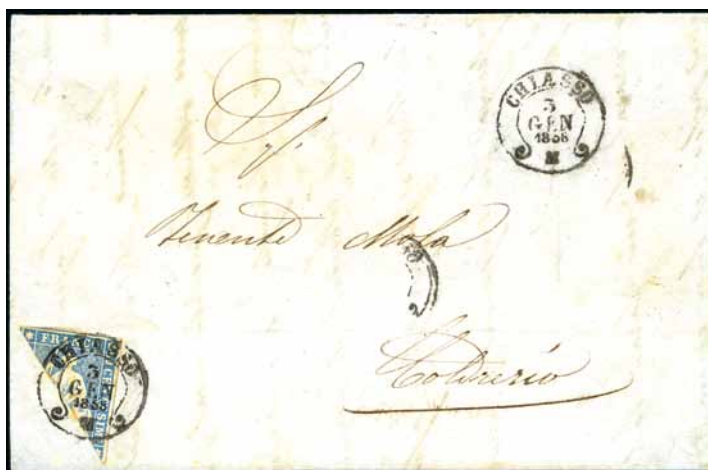 CHIASSO
3
GEN
1858
M
Sr.
Tenente Mola
Coldrerio
FRANCO
CHIASSO
3
GEN
1858
M